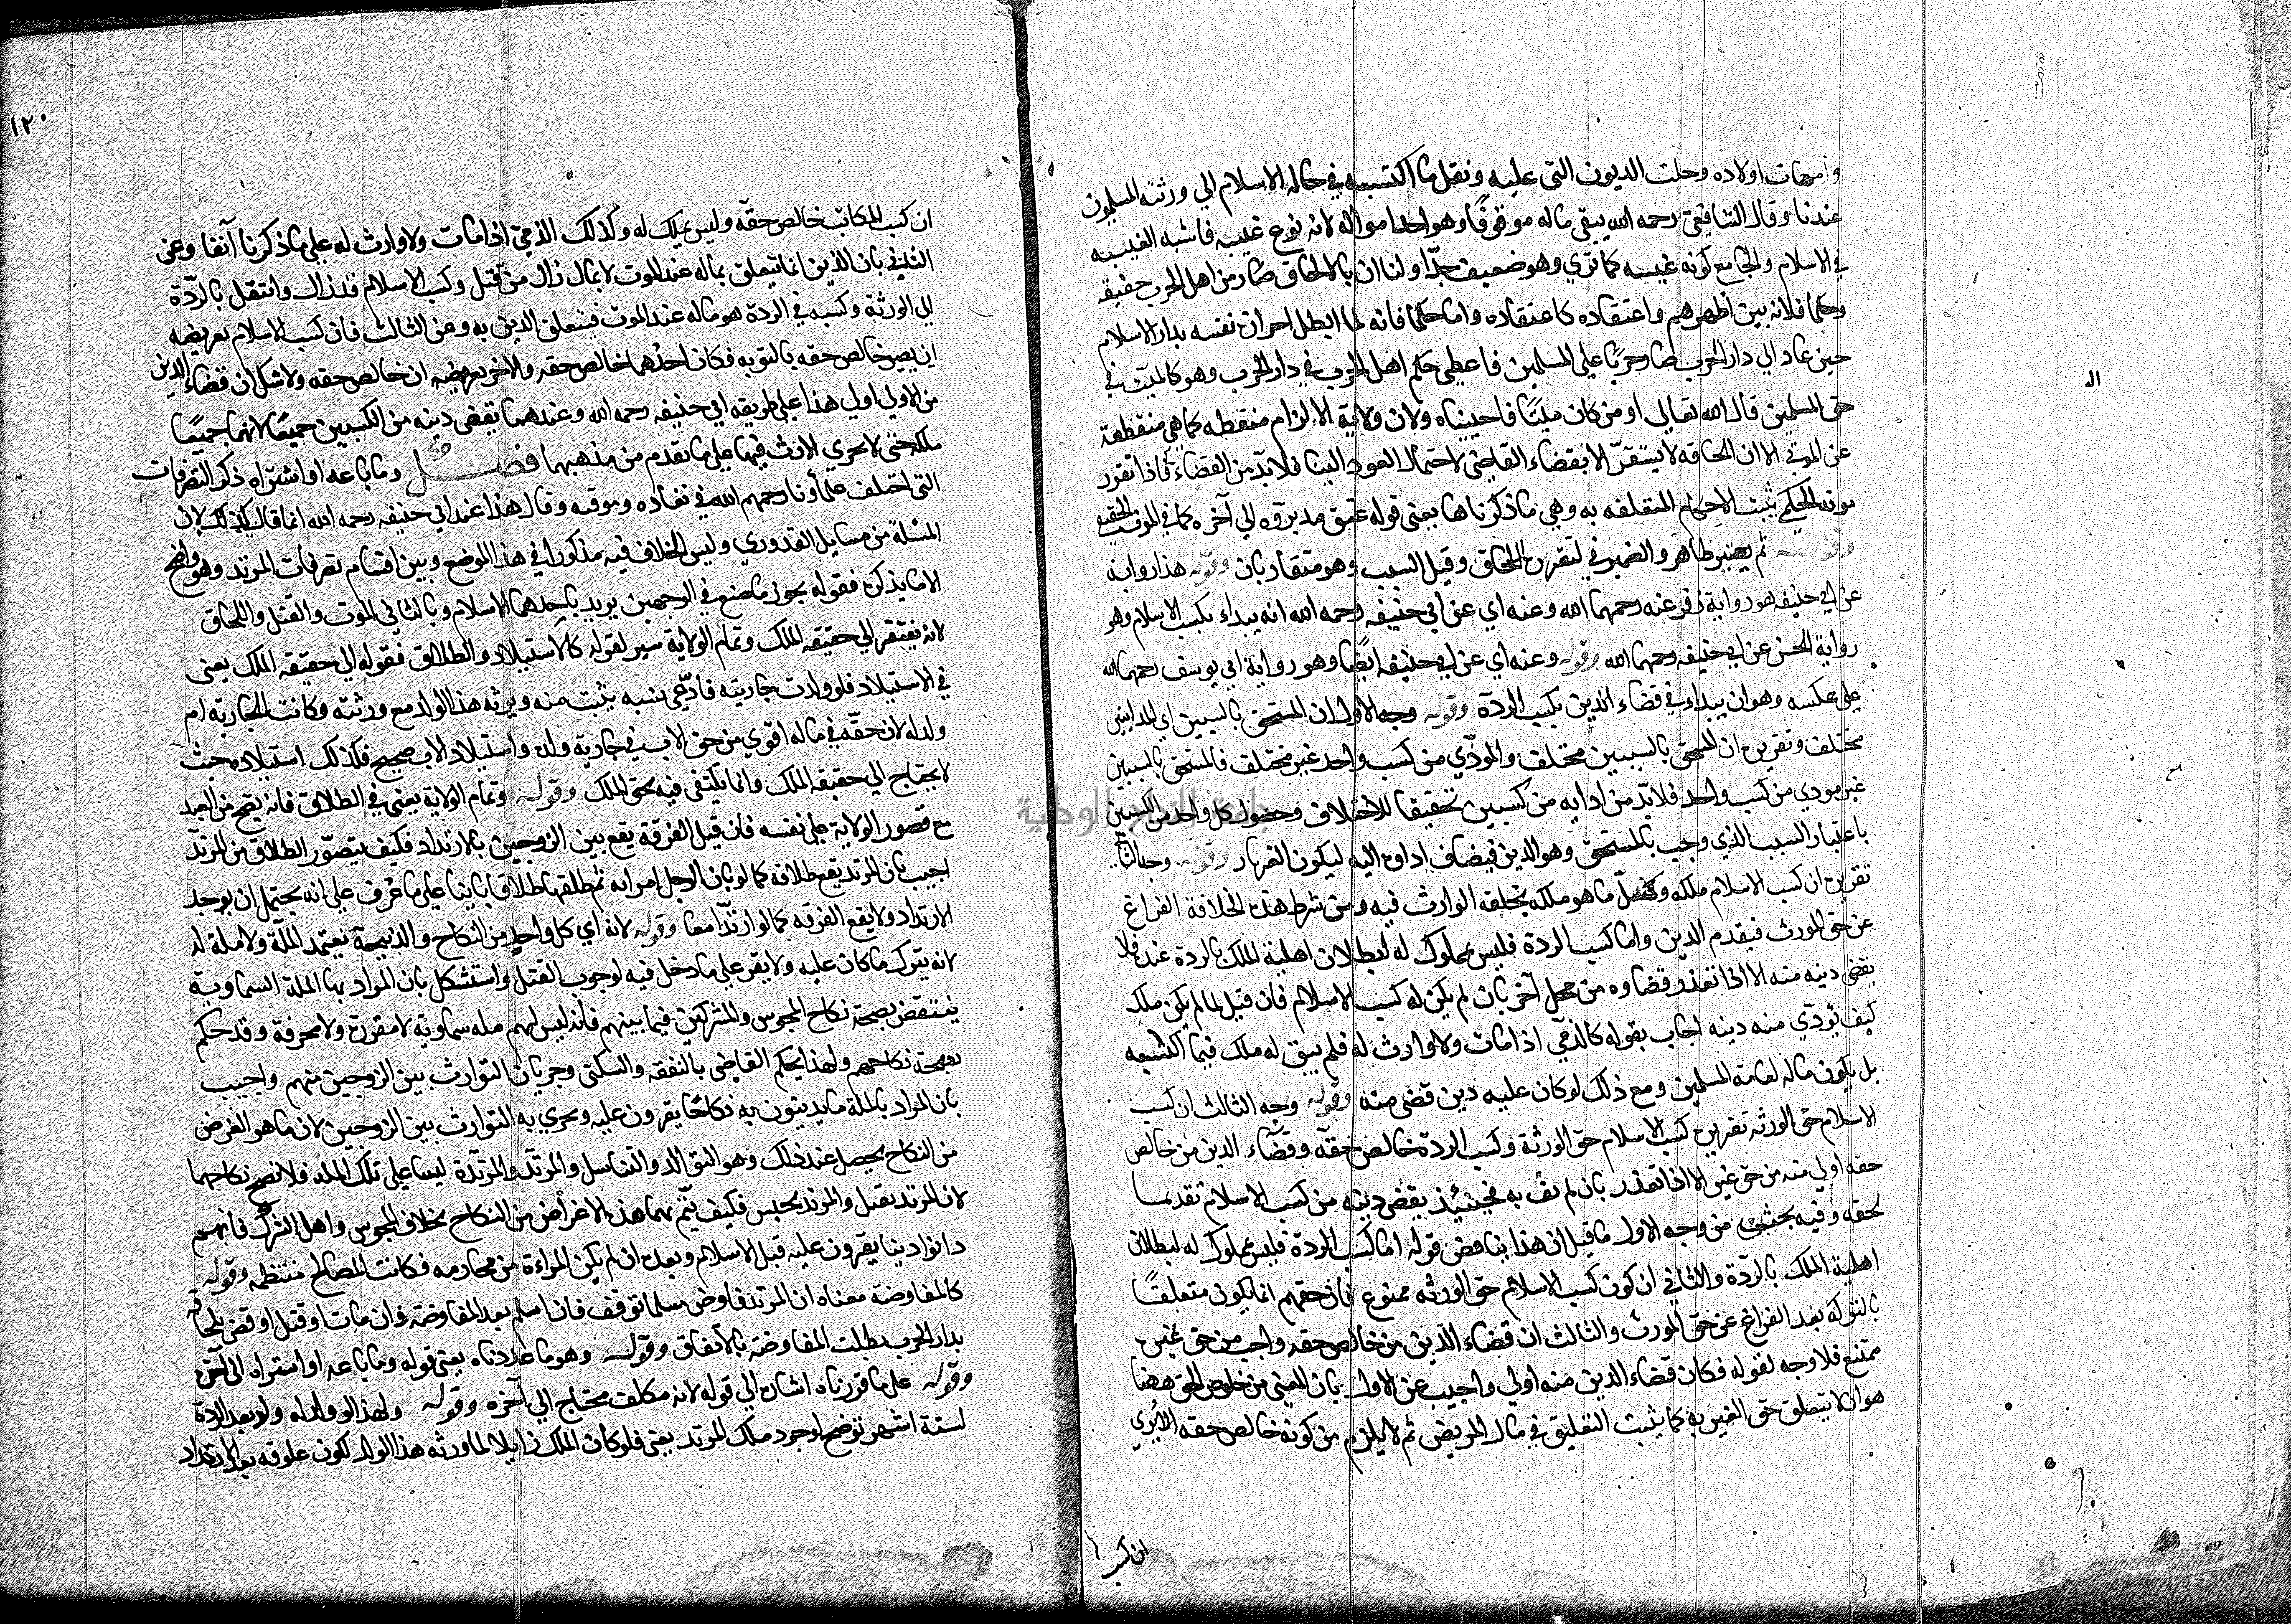 وامهات اولاده وحلت الديون التي عليه ونقل ما اكتسبه في حالة الاسلام الي ورثته المسلمون
عندنا وقال الشافعي رحمه الله يبقى ماله موقوفا وهو احد امواله لانه نوع غيبه فاشبه الغيبه
في الاسلام والجامع كونه غيبه كما تري وهو ضعيف جدّا ولنا ان بالالحاق صار من اهل الحرب حقيقه
وحكما فلانه بين اظهرهم واعتقاده كاعتقاده واما حكما فانه لما ابطل احراز نفسه بدار الاسلام
حين عاد الي دار الحرب صار حربًا علي المسلمين فاعطي حكم اهل الحرب في دار الحرب وهو كالميّت في
حق المسلمين قال الله تعالي او من كان ميتًا فاحييناه ولان ولاية الالزام منقطعه كما هي منقطعة
عن الموتي الا ان لحاقه لا يستقرّ الا بقضاء القاضي لاحتمال العود الينا فلا بدّ من القضاء فاذا تقرر
موته الحكمي يثبت الاحكام المتعلقه به وهي ما ذكرناها يعني قوله عتق مدبروه الي آخره كما في الموت الحقيقي
وقوله ثم يعتبر ظاهر والضمير في لتقرره للحاق وقيل السبب وهو متقاربان وقوله هذا رواية
عن ابي حنيفه هو رواية زفر عنه رحمهما الله وعنه اي عن ابي حنيفه رحمه الله انه يبداء بكسب الاسلام وهو
رواية الحسن عن ابي حنيفه رحمهما الله وقوله وعنه اي عن ابي حنيفه ايضًا وهو رواية ابي يوسف رحمهما الله
علي عكسه وهو ان يبداء في قضاء الدين بكسب الردة وقوله وجه الاول ان المستحق بالسببين اي الدينين
مختلف وتقريره ان المستحق بالسببين مختلف والمودّي من كسب واحد غير مختلف فالمستحق بالسببين
غير مودي من كسب واحد فلا بدّ من ادايه من كسبين تحقيقا للاختلاف وحصول كل واحد من الكسبين
باعتبار السبب الذي وجب به المستحق وهو الدين فيضاف اداوه اليه ليكون الغرم بار وقوله وجه الثاني
تقريره ان كسب الاسلام ملكه وكل ما هو ملكه يخلفه الوارث فيه ومن شرط هذه الخلافة الفراغ
عن حق المورث فيقدم الدين واما كسب الردة فليس بمملوك له لبطلان اهلية الملك بالردة عنده فلا
يقضي دينه منه الا اذا تعذر قضاوه من محل آخر بان لم يكن له كسب الاسلام فان قيل لما لم يكن ملكه
كيف يؤدّي منه دينه اجاب بقوله كالذمي اذا مات ولا وارث له فلم يبق له ملك فيما اكتسبه
بل يكون ماله لعامة المسلمين ومع ذلك لو كان عليه دين قضي منه وقوله وجه الثالث ان كسب
الاسلام حق الورثه تقريره كسب الاسلام حق الورثة وكسب الردة خالص حقّه وقضاء الدين من خالص
حقه اولي منه من حق غيره الا اذا تعذر بان لم يف به فحينئذ يقضي دينه من كسب الاسلام تقديما
لحقه وفيه بحث من وجه الاول ما قيل ان هذا يناقض قوله اما كسب الردة فليس بمملوك له لبطلان
اهلية الملك بالردّة والثاني ان كون كسب الاسلام حق الورثه ممنوع فان حقهم انما يكون متعلقًا
بالتركه بعد الفراغ عن حق المورث والثالث ان قضاء الدين من خالص حقه واجب ومن حق غيره
ممتنع فلا وجه لقوله فكان قضاء الدين منه اولي واجيب عن الاول بان المعني من خلوص الحق ههنا
هو ان لا يتعلق حق الغير به كما يثبت التعليق في مال المريض ثم لا يلزم من كونه خالص حقه الا تري
ان كسب
١٢٠
ان كسب المكاتب خالص حقّه وليس بملك له وكذلك الذمي اذا مات ولا وارث له علي ما ذكرنا آنفا وعن
الثاني بان الدين انما يتعلق بماله عند الموت لا بمال زال من قبل وكسب الاسلام قد زال وانتقل بالردّة
الي الورثة وكسبه في الردة هو ماله عند الموت فيتعلق الدين به وعن الثالث فان كسب الاسلام بعرضيه
ان يصير خالص حقه بالتوبه فكان احدهما خالص حقه والاخر بعرضيه ان خالص حقه ولا شك ان قضاء الدين
من الاول اولي هذا علي طريقه ابي حنيفه رحمه الله وعندهما يقضي دينه من الكسبين جميعًا لانهما جميعًا
ملكه حتى يجري الارث فيهما علي ما تقدم من مذهبهما فصل وما باعه او اشتراه ذكر التصرفات
التي اختلف علماؤنا رحمهم الله في نفاده وموقفه وقال هذا عند ابي حنيفه رحمه الله انما قال كذلك لان
المسئلة من مسايل القدوري وليس الخلاف فيه مذكورا في هذا الموضع وبين اقسام تصرفات المرتد وهو واضح
الا ما يذكره فقوله يجوز ما صنع في الوجهين يريد باحدهما الاسلام وبالثاني الموت والقتل واللحاق
لانه يفتقر الي حقيقه الملك وتمام الولاية سير لقوله كالاستيلاد والطلاق فقوله الي حقيقه الملك يعني
في الاستيلاد فلو ولدت جاريته فادّعي نسبه يثبت منه ويرثه هذا الولد مع ورثته وكانت الجاريه ام
ولد له لان حقه في ماله اقوي من حق الاب في جارية ولده واستيلاد الاب صحيح فكذلك استيلاده حيث
لا يحتاج الي حقيقه الملك وانما يكتفي فيه بحق الملك وقوله وتمام الولاية يعني في الطلاق فانه يصح من العبد
مع قصور الولاية علي نفسه فان قيل الفرقة يقع بين الزوجين بالارتداد فكيف يتصوّر الطلاق من المرتدّ
اجيب بان المرتد يقع طلاقه كما لو بان الرجل امراته ثم طلقها طلاقا بايناً علي ما عرف علي انه يحتمل ان يوجد
الارتداد ولا يقع الفرقه كما لو ارتدّا معا وقوله لانه اي كل واحد من النكاح والذبيحة يعتمد الملّة ولا ملة له
لانه يترك ما كان عليه ولا يقر علي ما دخل فيه لوجوب القتل واستشكل بان المراد بها الملة السماوية
ينتقض بصحة نكاح المجوس والمشركين فيما بينهم فانه ليس لهم مله سماوية لا مقررة ولا محرفة وقد حكم
بصحة نكاحهم ولهذا يحكم القاضي بالنفقه والسكني وجريان التوارث بين الزوجين منهم واجيب
بان المراد بالملة ما يدينون به نكاحًا يقرون عليه ويجري به التوارث بين الزوجين لان ما هو الغرض
من النكاح يحصل عند ذلك وهو التوالد والتناسل والمرتدّ والمرتدّة ليسا علي تلك المله فلا يصح نكاحهما
لان المرتد يقتل والمرتد يحبس فكيف يتمّ بهما هذه الاغراض من النكاح بخلاف المجوس واهل الشرك فانهم
دانوا دينا يقرون عليه قبل الاسلام وبعده ان لم يكن المراءة من محارمه فكانت المصالح منتظمه وقوله
كالمفاوضة معناه ان المرتد فاوض مسلما توقف فان اسلم بعد المفاوضة وان مات او قتل او قضي بلحاقه
بدار الحرب بطلت المفاوضة بالاتفاق وقوله وهو ما عددناه يعني قوله وما باعه او اشتراه الي آخره
وقوله علي ما قررناه اشارة الي قوله لانه مكلف محتاج الي آخره وقوله ولهذا لو ولد له ولد بعد الردة
لستة اشهر توضيح لوجود ملك المرتد يعني فلو كان الملك زايلا لما ورثه هذا الولد لكون علوقه بعد الارتداد